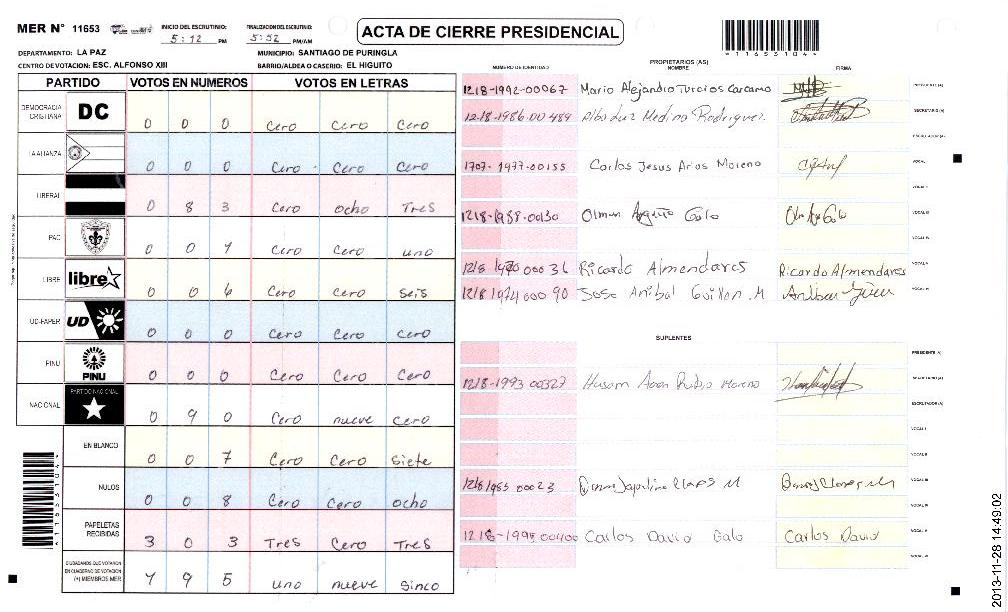 MER Nº 11653
INICIO DEL ESCRUTINIO:
5:12 PM
FINALIZACION DEL ESCRUTINIO:
5:52 PM/AM
ACTA DE CIERRE PRESIDENCIAL
*1165310 4*
DEPARTAMENTO: LA PAZ
MUNICIPIO: SANTIAGO DE PURINGLA
CENTRO DE VOTACION: ESC. ALFONSO XIII
BARRIO/ALDEA O CASERIO: EL HIGUITO
PARTIDO VOTOS EN NUMEROS VOTOS EN LETRAS
DEMOCRACIA CRISTIANA DC 0 0 0 Cero Cero Cero
LA ALIANZA 0 0 0 Cero Cero Cero
LIBERAL 0 8 3 Cero ocho Tres
PAC 0 0 1 Cero Cero uno
LIBRE libre 0 0 6 Cero Cero seis
UD-FAPER UD 0 0 0 Cero Cero Cero
PINU PINU 0 0 0 Cero Cero Cero
NACIONAL PARTIDO NACIONAL 0 9 0 Cero nueve Cero
EN BLANCO 0 0 7 Cero Cero siete
NULOS 0 0 8 Cero Cero ocho
PAPELETAS RECIBIDAS 3 0 3 Tres Cero Tres
CIUDADANOS QUE VOTARON
EN CUADERNO DE VOTACION
(+) MIEMBROS MER 1 9 5 uno nueve sinco
NUMERO DE IDENTIDAD
PROPIETARIOS (AS)
NOMBRE
FIRMA
1218-1992-00067 Mario Alejandro Turcios Carcamo PRESIDENTE (A)
1218-1986-00489 Medina Rodriguez. SECRETARIO (A)
ESCRUTADOR (A)
1707-1977-00155 Carlos Jesus Arias Moreno VOCAL
VOCAL II
1218-1988-00130 Olman Galo VOCAL III
VOCAL IV
1218 1970 00036 Ricardo Almendares Ricardo Almendares VOCAL V
1218 1974 000 90 Jose Anibal Guillen M VOCAL VI
SUPLENTES
PRESIDENTE (A)
1218-1993 00327 Rubio Moreno SECRETARIO (A)
ESCRUTADOR (A)
VOCAL I
VOCAL II
1218 1985 00023 VOCAL III
VOCAL IV
1218-1995 00400 Carlos David Galo Carlos David VOCAL V
VOCAL VI
2013-11-28 14:49:02